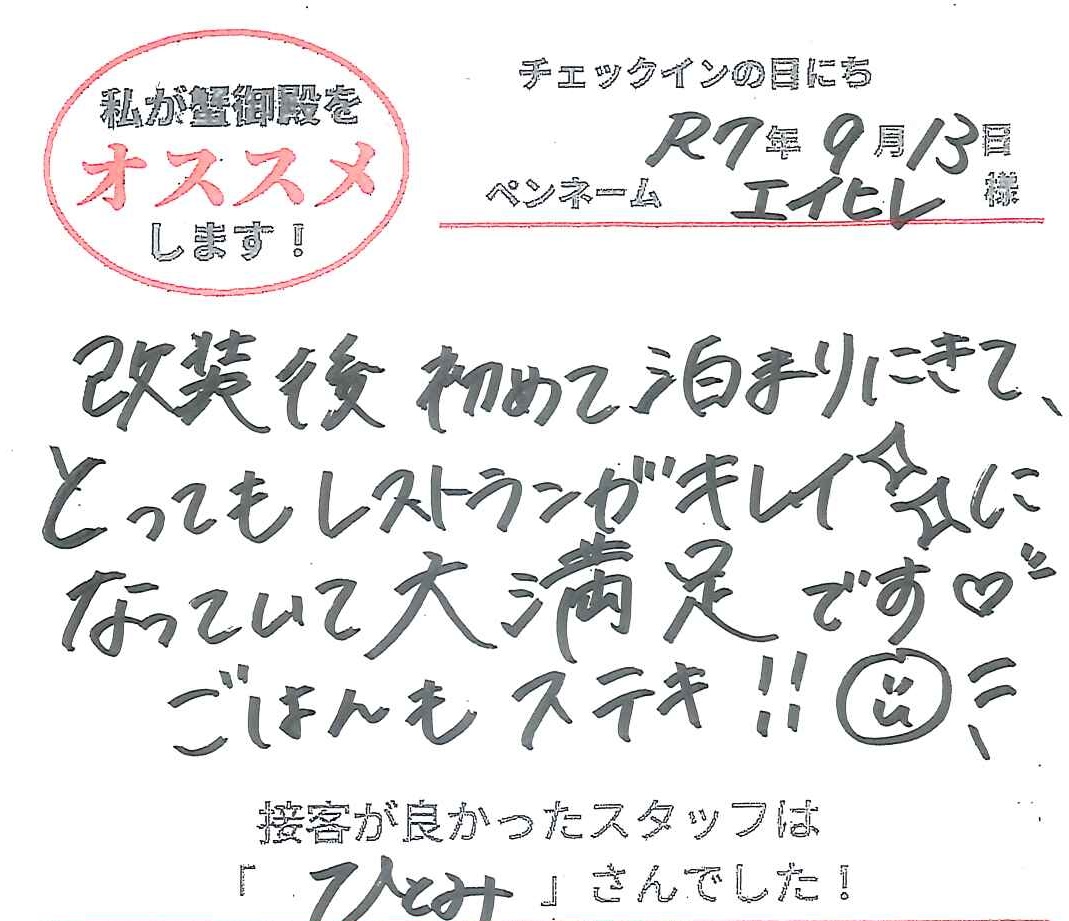 私が蟹御殿を
オススメ
します！
チェックインの日にち
R7年9月13日
ペンネーム エイヒレ 様
改装後 初めて泊まりにきて、
とってもレストランがキレイに
なっていて大満足です♡
ごはんもステキ!!
接客が良かったスタッフは
「 ひとみ 」さんでした！